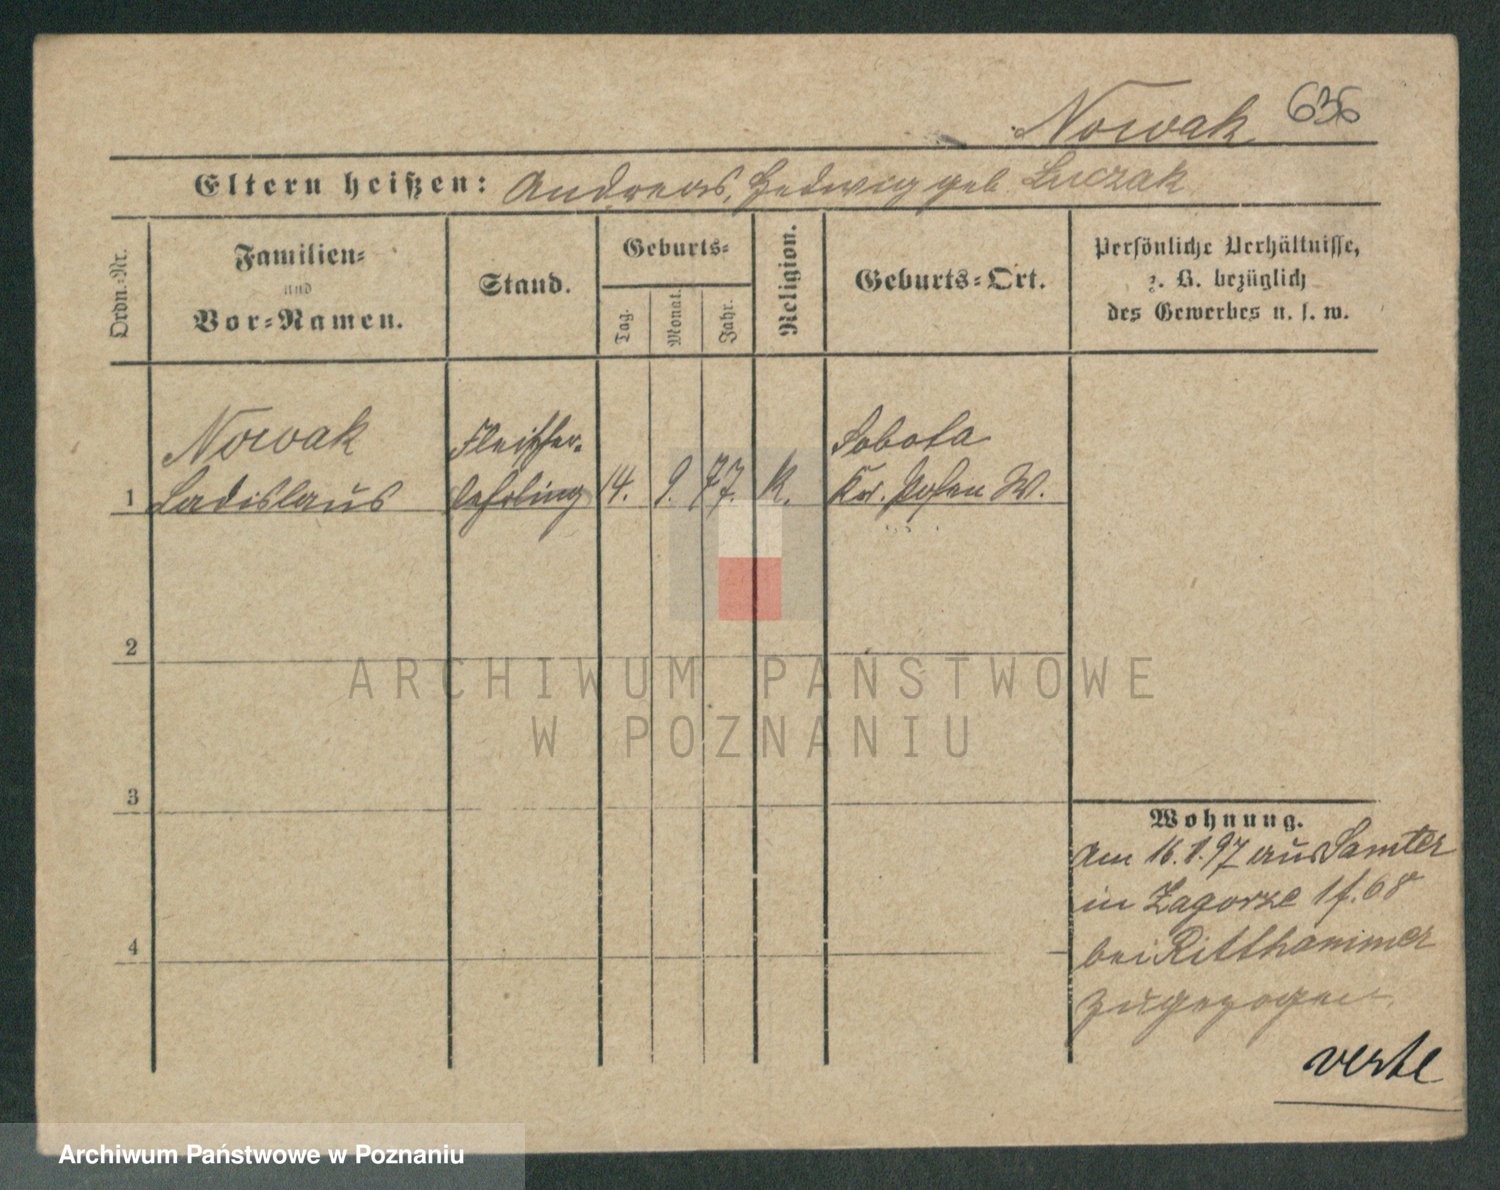 Nowak 636
Eltern heißen: Andreas, Hedwig geb. Luczak
Ordn.-Nr.
Familien-
und
Vor-Namen.
Stand.
Geburts-
Tag.
Monat.
Jahr.
Religion.
Geburts-Ort.
Persönliche Verhältnisse,
z. B. bezüglich
des Gewerbes u. s. w.
1
Nowak
Ladislaus
Fleischer-
lehrling
14. 9. 77. K.
Sobota
Kr. Posen W.
2
ARCHIWUM PAŃSTWOWE
W POZNANIU
3
4
Wohnung.
Am 16.1.97 aus Samter
in Zagorze 1 f. 68
bei Ritthammer
zugezogen.
verte
Archiwum Państwowe w Poznaniu